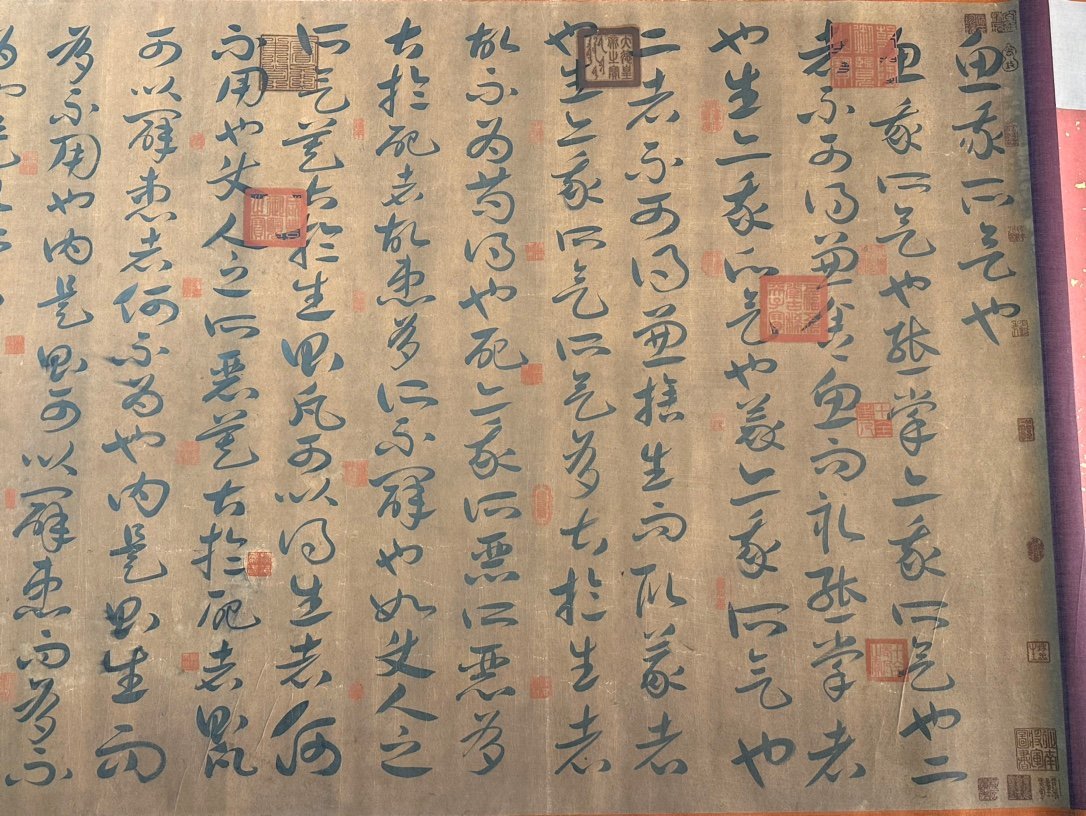 魚我所欲也
魚我所欲也熊掌亦我所欲也二
者不可得兼舍魚而取熊掌者
也生亦我所欲也義亦我所欲也
二者不可得兼捨生而取義者
也生亦我所欲所欲有甚於生者
故不為苟得也死亦我所惡所惡有
甚於死者故患有所不辟也如使人之
所欲莫甚於生則凡可以得生者何
不用也使人之所惡莫甚於死者則凡
可以辟患者何不為也由是則生而
有不用也由是則可以辟患而有不
為也